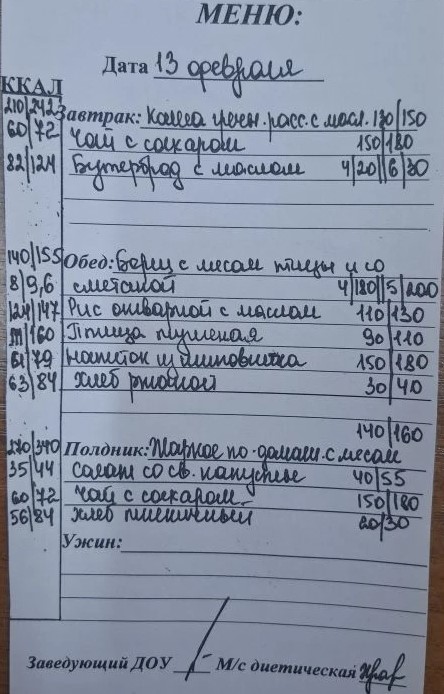 МЕНЮ:
Дата 13 февраля
ККАЛ
210/242 Завтрак: Каша гречн. расс. с масл. 130/150
60/72 Чай с сахаром 150/180
82/124 Бутерброд с маслом 4/20//6/30
140/155 Обед: Борщ с мясом птицы и со
8/9,6 сметаной 4/180//5/200
124/147 Рис отварной с маслом 110/130
/160 Птица тушеная 90/110
61/79 напиток из шиповника 150/180
63/84 хлеб ржаной 30/40
140/160
270/340 Полдник: Жаркое по-домаш. с мясом
35/44 салат со св. капусты 40/55
60/72 Чай с сахаром 150/180
56/84 хлеб пшеничный 20/30
Ужин:
Заведующий ДОУ М/с диетическая